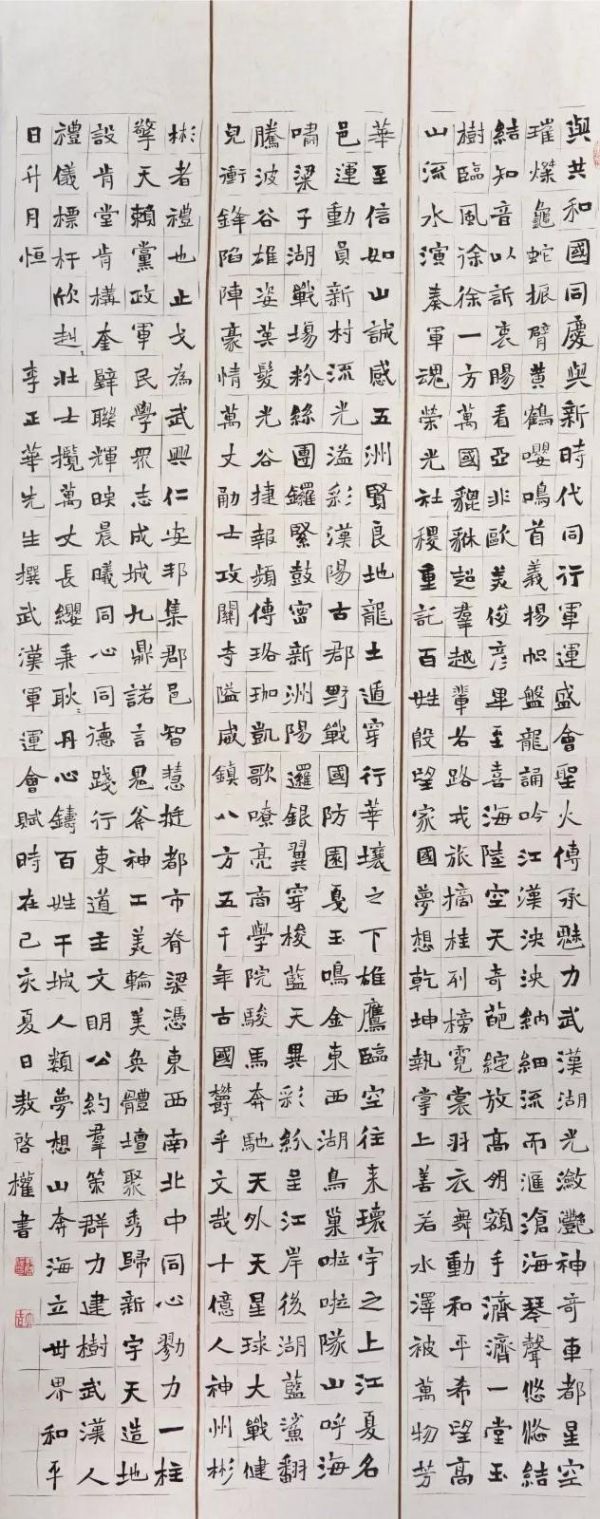 與共和國同慶與新時代同行軍運盛會聖火傳承魅力武漢湖光瀲灩神奇車都星空
璀燦龜蛇振臂黃鶴嚶鳴首義揚帆盤龍誦吟江漢泱泱納細流而滙滄海琴聲悠悠結
結知音以訴衷腸看亞非歐美俊彥畢至喜海陸空天奇葩綻放高朋額手濟濟一堂玉
樹臨風徐徐一方萬國貔貅超羣越輩若路戎旅摘桂列榜霓裳羽衣舞動和平希望高
山流水演奏軍魂榮光社稷重託百姓殷望家國夢想乾坤執掌上善若水澤被萬物芳
華至信如山誠感五洲賢良地龍土遁穿行華壤之下雄鷹臨空往來環宇之上江夏名
邑運動員新村流光溢彩漢陽古郡野戰國防園戛玉鳴金東西湖鳥巢啦啦隊山呼海
嘯梁子湖戰場粉絲團鑼緊鼓密新洲陽邏銀翼穿梭藍天異彩紛呈江岸後湖藍鯊翻
騰波谷雄姿英髮光谷捷報頻傳珞珈凱歌嘹亮商學院駿馬奔馳天外天星球大戰健
兒衝鋒陷陣豪情萬丈勈士攻關夺隘威鎮八方五千年古國欝乎文哉十億人神州彬
彬者禮也止戈為武興仁安邦集郡邑智慧挺都市脊梁憑東西南北中同心勠力一柱
擎天賴黨政軍民學眾志成城九鼎諾言鬼斧神工美輪美奐體壇聚秀歸新宇天造地
設肯堂肯構奎壁聯輝映晨曦同心同德踐行東道主文明公約羣策群力建樹武漢人
禮儀標杆欣赳〻壯士攬萬丈長纓秉耿〻丹心鑄百姓干城人類夢想山奔海立世界和平
日升月恒 李正華先生撰武漢軍運會賦時在己亥夏日敖啓權書